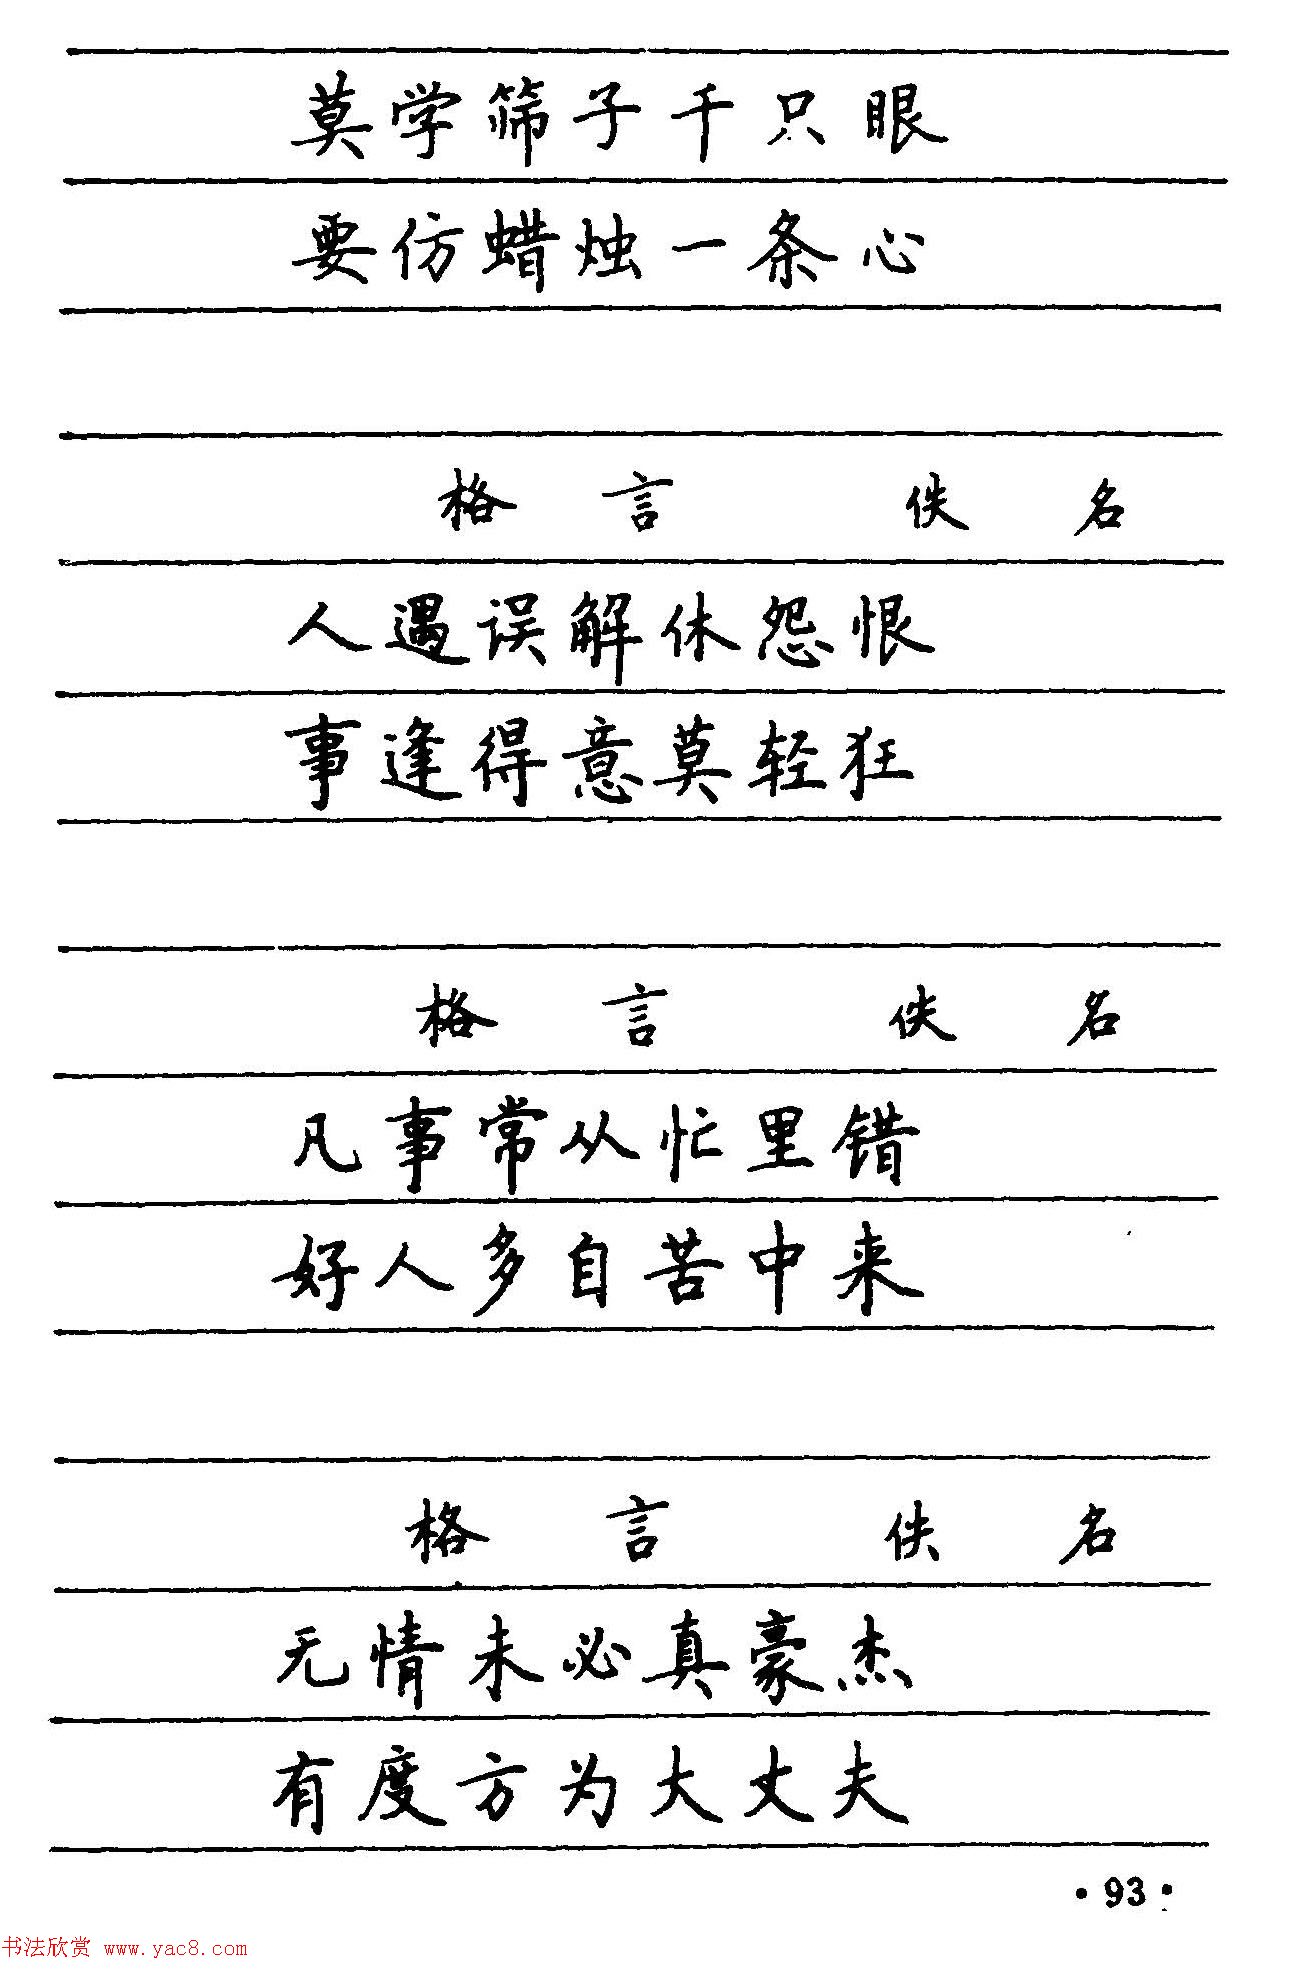 莫学筛子千只眼
要仿蜡烛一条心
格言 佚名
人遇误解休怨恨
事逢得意莫轻狂
格言 佚名
凡事常从忙里错
好人多自苦中来
格言 佚名
无情未必真豪杰
有度方为大丈夫
·93·
书法欣赏 www.yac8.com